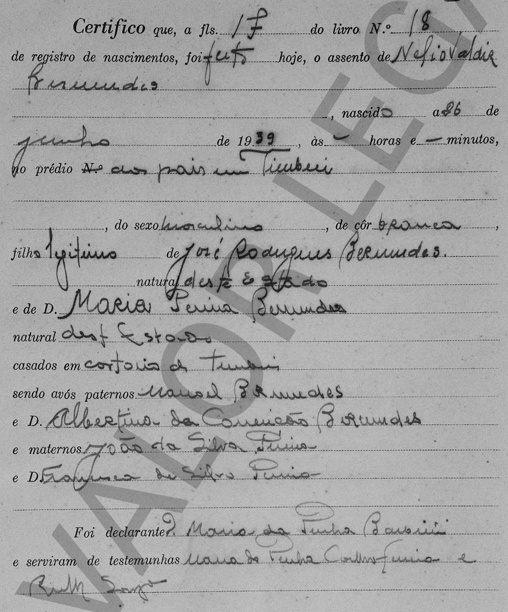 Certifico que, a fls. 17 do livro N.º 18
de registro de nascimentos, foi feito hoje, o assento de Nelio Valdir
Bermudes
, nascido a 26 de
junho de 1939, às — horas e — minutos,
no prédio N.º dos pais em Timbui
, do sexo masculino, de côr branca,
filho legitimo de José Rodrigues Bermudes.
natural deste Estado
e de D. Maria Penna Bermudes
natural deste Estado
casados em cartorio de Timbui
sendo avós paternos Manoel Bermudes
e D. Albertina da Conceição Bermudes
e maternos João da Silva Penna
e D. Francisca da Silva Penna
Foi declarante D. Maria da Penha
e serviram de testemunhas Maria da Penha Coelho e
Ruth
VALOR LEGAL